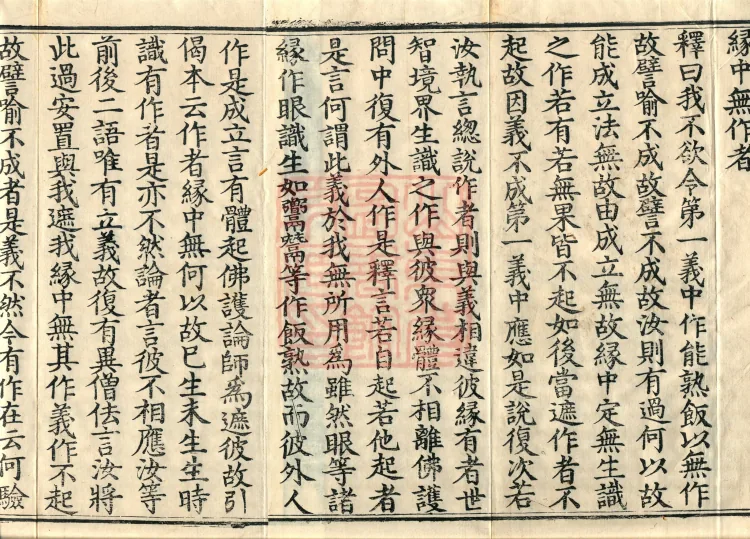 緣中無作者
釋曰我不欲令第一義中作能熟飯以無作
故譬喻不成故譬不成故汝則有過何以故
能成立法無故由成立無故緣中定無生識
之作若有若無果皆不起如後當遮作者不
起故因義不成第一義中應如是說復次若
汝執言總說作者則與義相違彼緣有者世
智境界生識之作與彼衆緣體不相離佛護
問中復有外人作是釋言若自起若他起者
是言何謂此義於我無所用為雖然眼等諸
緣作眼識生如鬻䰞等作飯熟故而彼外人
作是成立言有體起佛護論師為遮彼故引
偈本云作者緣中無何以故已生未生生時
識有作者是亦不然論者言彼不相應汝等
前後二語唯有立義故復有異僧佉言汝將
此過安置與我遮我緣中無其作義作不起
故譬喻不成者是義不然今有作在云何驗